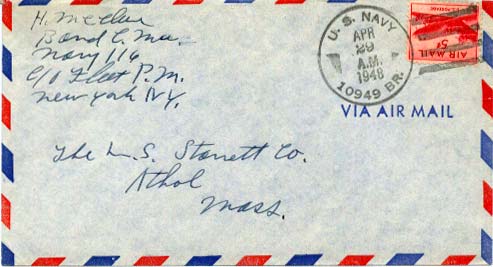 H. McClure
Navy 116
c/o Fleet P.M.
New York N.Y.
U. S. NAVY
APR
29
A.M.
1948
10949 BR.
AIR MAIL
5¢
VIA AIR MAIL
The L.S. Starrett Co.
Athol
Mass.